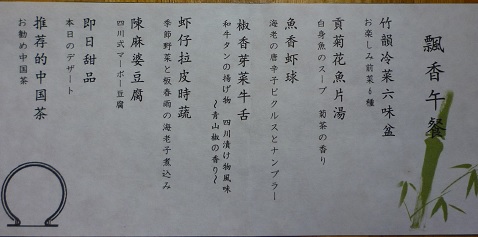 飄香午餐
竹韻冷菜六味盆
お楽しみ前菜6種
貢菊花魚片湯
白身魚のスープ 菊茶の香り
魚香虾球
海老の唐辛子ピクルスとナンプラー
椒香芽菜牛舌
和牛タンの揚げ物 四川漬け物風味
〜青山椒の香り〜
虾仔拉皮時蔬
季節野菜と板春雨の海老子煮込み
陳麻婆豆腐
四川式マーボー豆腐
即日甜品
本日のデザート
推荐的中国茶
お勧め中国茶